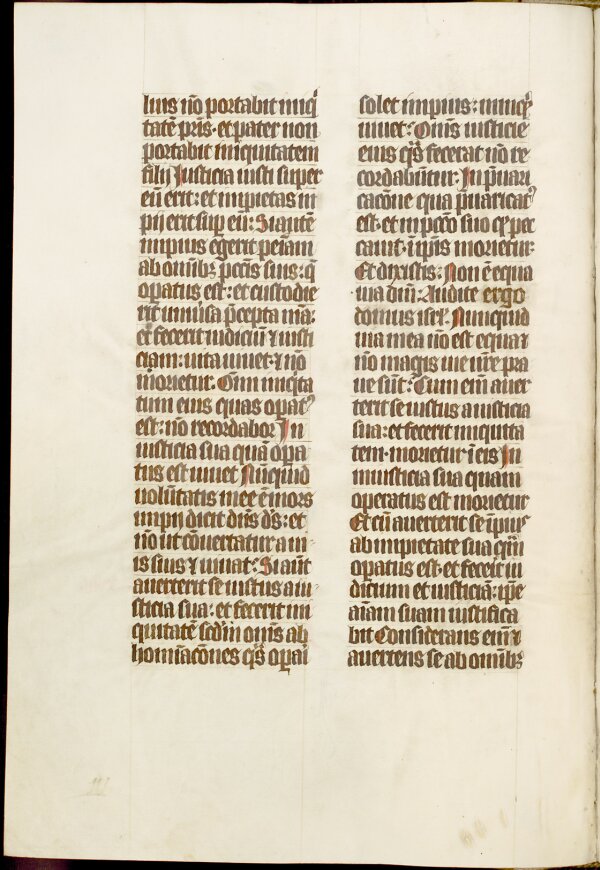 lius nō portabit iniq͛
tatē pr̄is· et pater non
portabit iniquitatem
filij Iusticia iusti super
eū erit: et impietas im
pij erit suꝑ eū: Si autē
impius egerit pēiam
ab om̄ibꝫ pcc̄is suis: q̄
oꝑatus est: et custodie
rit uniūsa p̄cepta mā:
et fecerit iudiciū ⁊ iusti
ciam: uita uiuet· ⁊ nō
morietur. Om̄m iniq̇ta
tum eius quas oꝑatꝰ
est: nō recordabor In
iusticia sua quā oꝑa
tus est uiuet Nūnquid
uolūtatis mee ē mors
impij dicit dn̄s ds̄: et
nō ut cōuertatur a ui
is suis ⁊ uiuat: Si aūt
auerterit se iustus a iu
sticia sua: et fecerit ini
quitatē scd̄m om̄s ab
homīacōnes q̄s oꝑari
solet impius: nunq͛
uiuet: Om̄s iusticie
eius q̄s fecerat nō re
cordabūtur: In p̄uari
cacōne qua p̄uaricatꝰ
est· et in pcc̄o suo qḋ pec
cauit· ī ip̄is morietur:
Et dixistis: Non ē equa
uia dn̄i: Audite ergo
domus isrl̄. Nunquid
uia mea nō est equa ⁊
nō magis uie ur̄e pra
ue sūt: Cum enī auer
terit se iustus a iusticia
sua: et fecerit iniquita
tem· morietur ī eis In
iniusticia sua quam
operatus est morietur
Et cū auerterit se īpiꝰ
ab impietate sua quā
oꝑatus est· et fecerit iu
dicium et iusticiā: ip̄e
aīam suam iustifica
bit Considerans enī ⁊
auertens se ab om̄ibꝫ